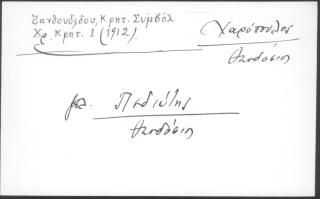 Ξανθουδίδου, Κρητ. Συμβόλ
Χρ. Κρητ. 1 (1912)
Χαρόπουλος
Θεοδόσιος
βλ. Πεδιώτης
Θεοδόσιος